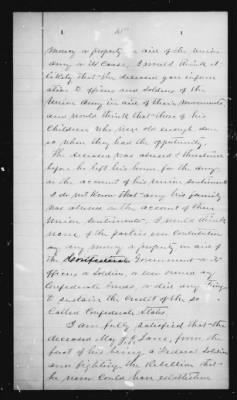 money or property in aid of the Union
Army or its Cause, I would think it
likely that the deceased gave inform
ation to officers and soldiers of the
Union Army in aid of their movements
and would think that those of his
Children who were old enough done
so when they had the opportunity.
The deceased was abused & threatened
before he left his home for the army
on the account of his Union sentiments
I do not know that any his family
was abused on the account of their
Union sentiments, I would think
none of the parties ever Contributed
any money or property in aid of
the Confederate Government or its
officers or Soldiers, or ever owned any
Confederate bonds, or did any thing
to sustain the Credit of the so
Called Confederate States
I am fully satisfied that the
deceased May J. J. Lane, from the
fact of his being a Federal Soldier
and fighting the Rebellion that
he never could have